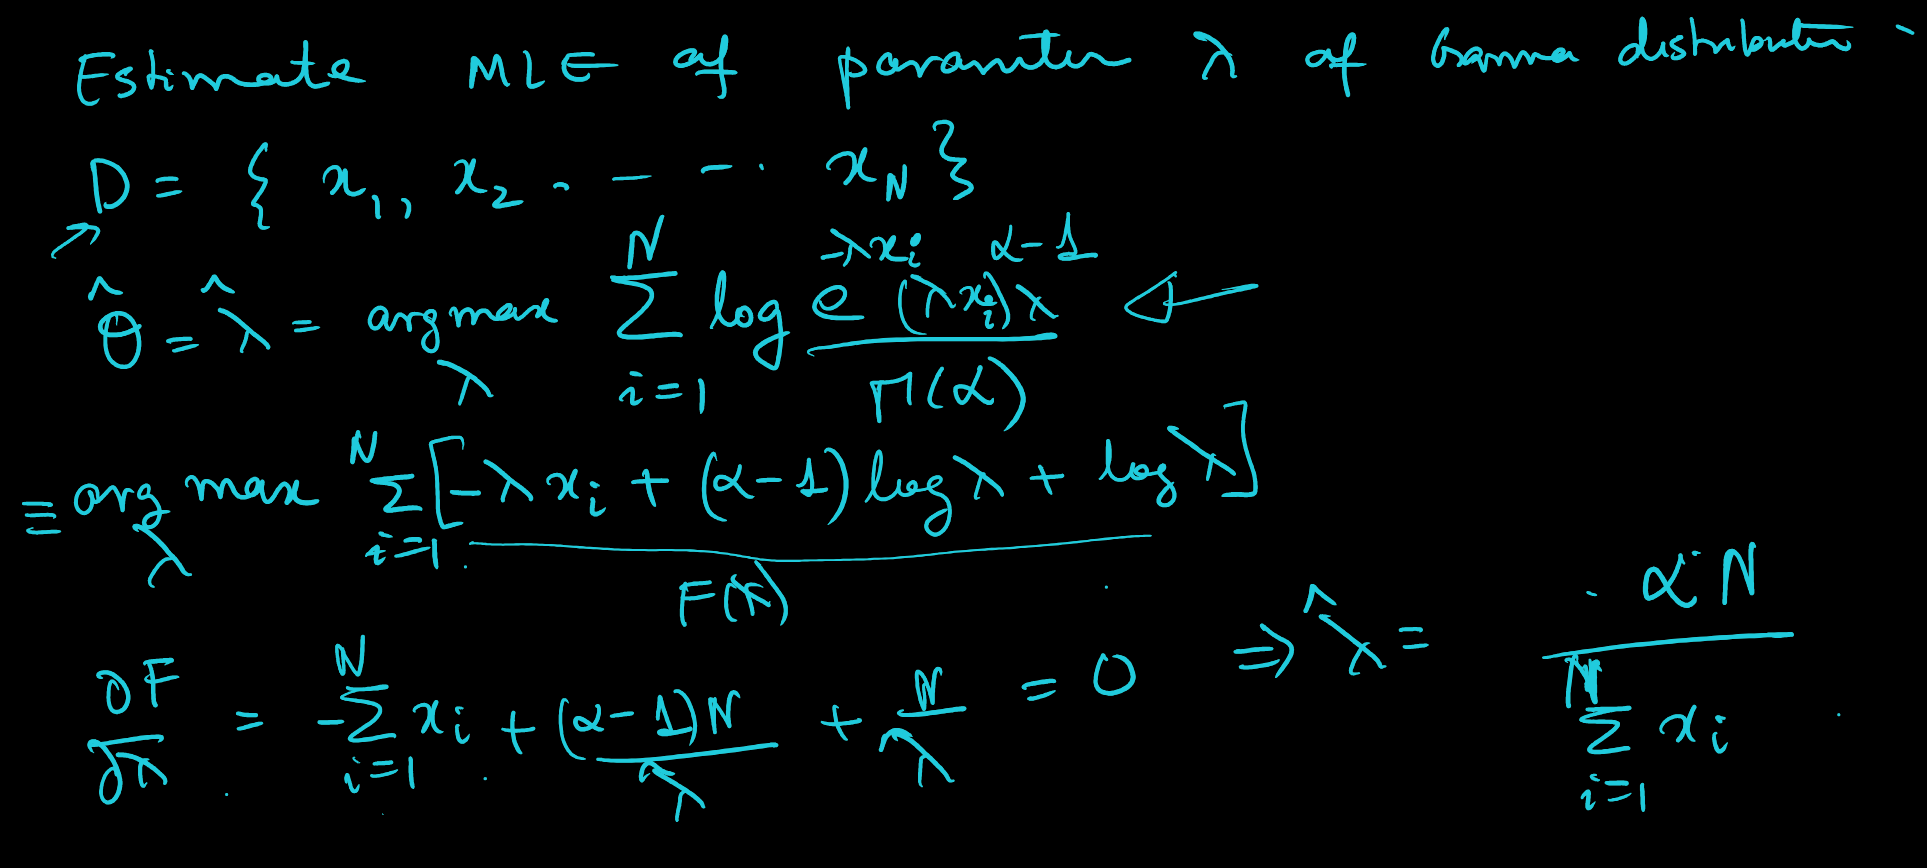 Estimate MLE of parameter λ of Gamma distribution
D = { x₁, x₂ . - - . x_N }
θ̂ = λ̂ = argmax_λ Σ_{i=1}^{N} log (e^{-λx_i} (λx_i)^{α-1} λ) / Γ(α)
≡ arg max_λ Σ_{i=1}^{N} [-λx_i + (α-1) log λ + log λ]
F(λ)
∂F/∂λ = -Σ_{i=1}^{N} x_i + (α-1)N/λ + N/λ = 0 ⇒ λ̂ = αN / Σ_{i=1}^{N} x_i